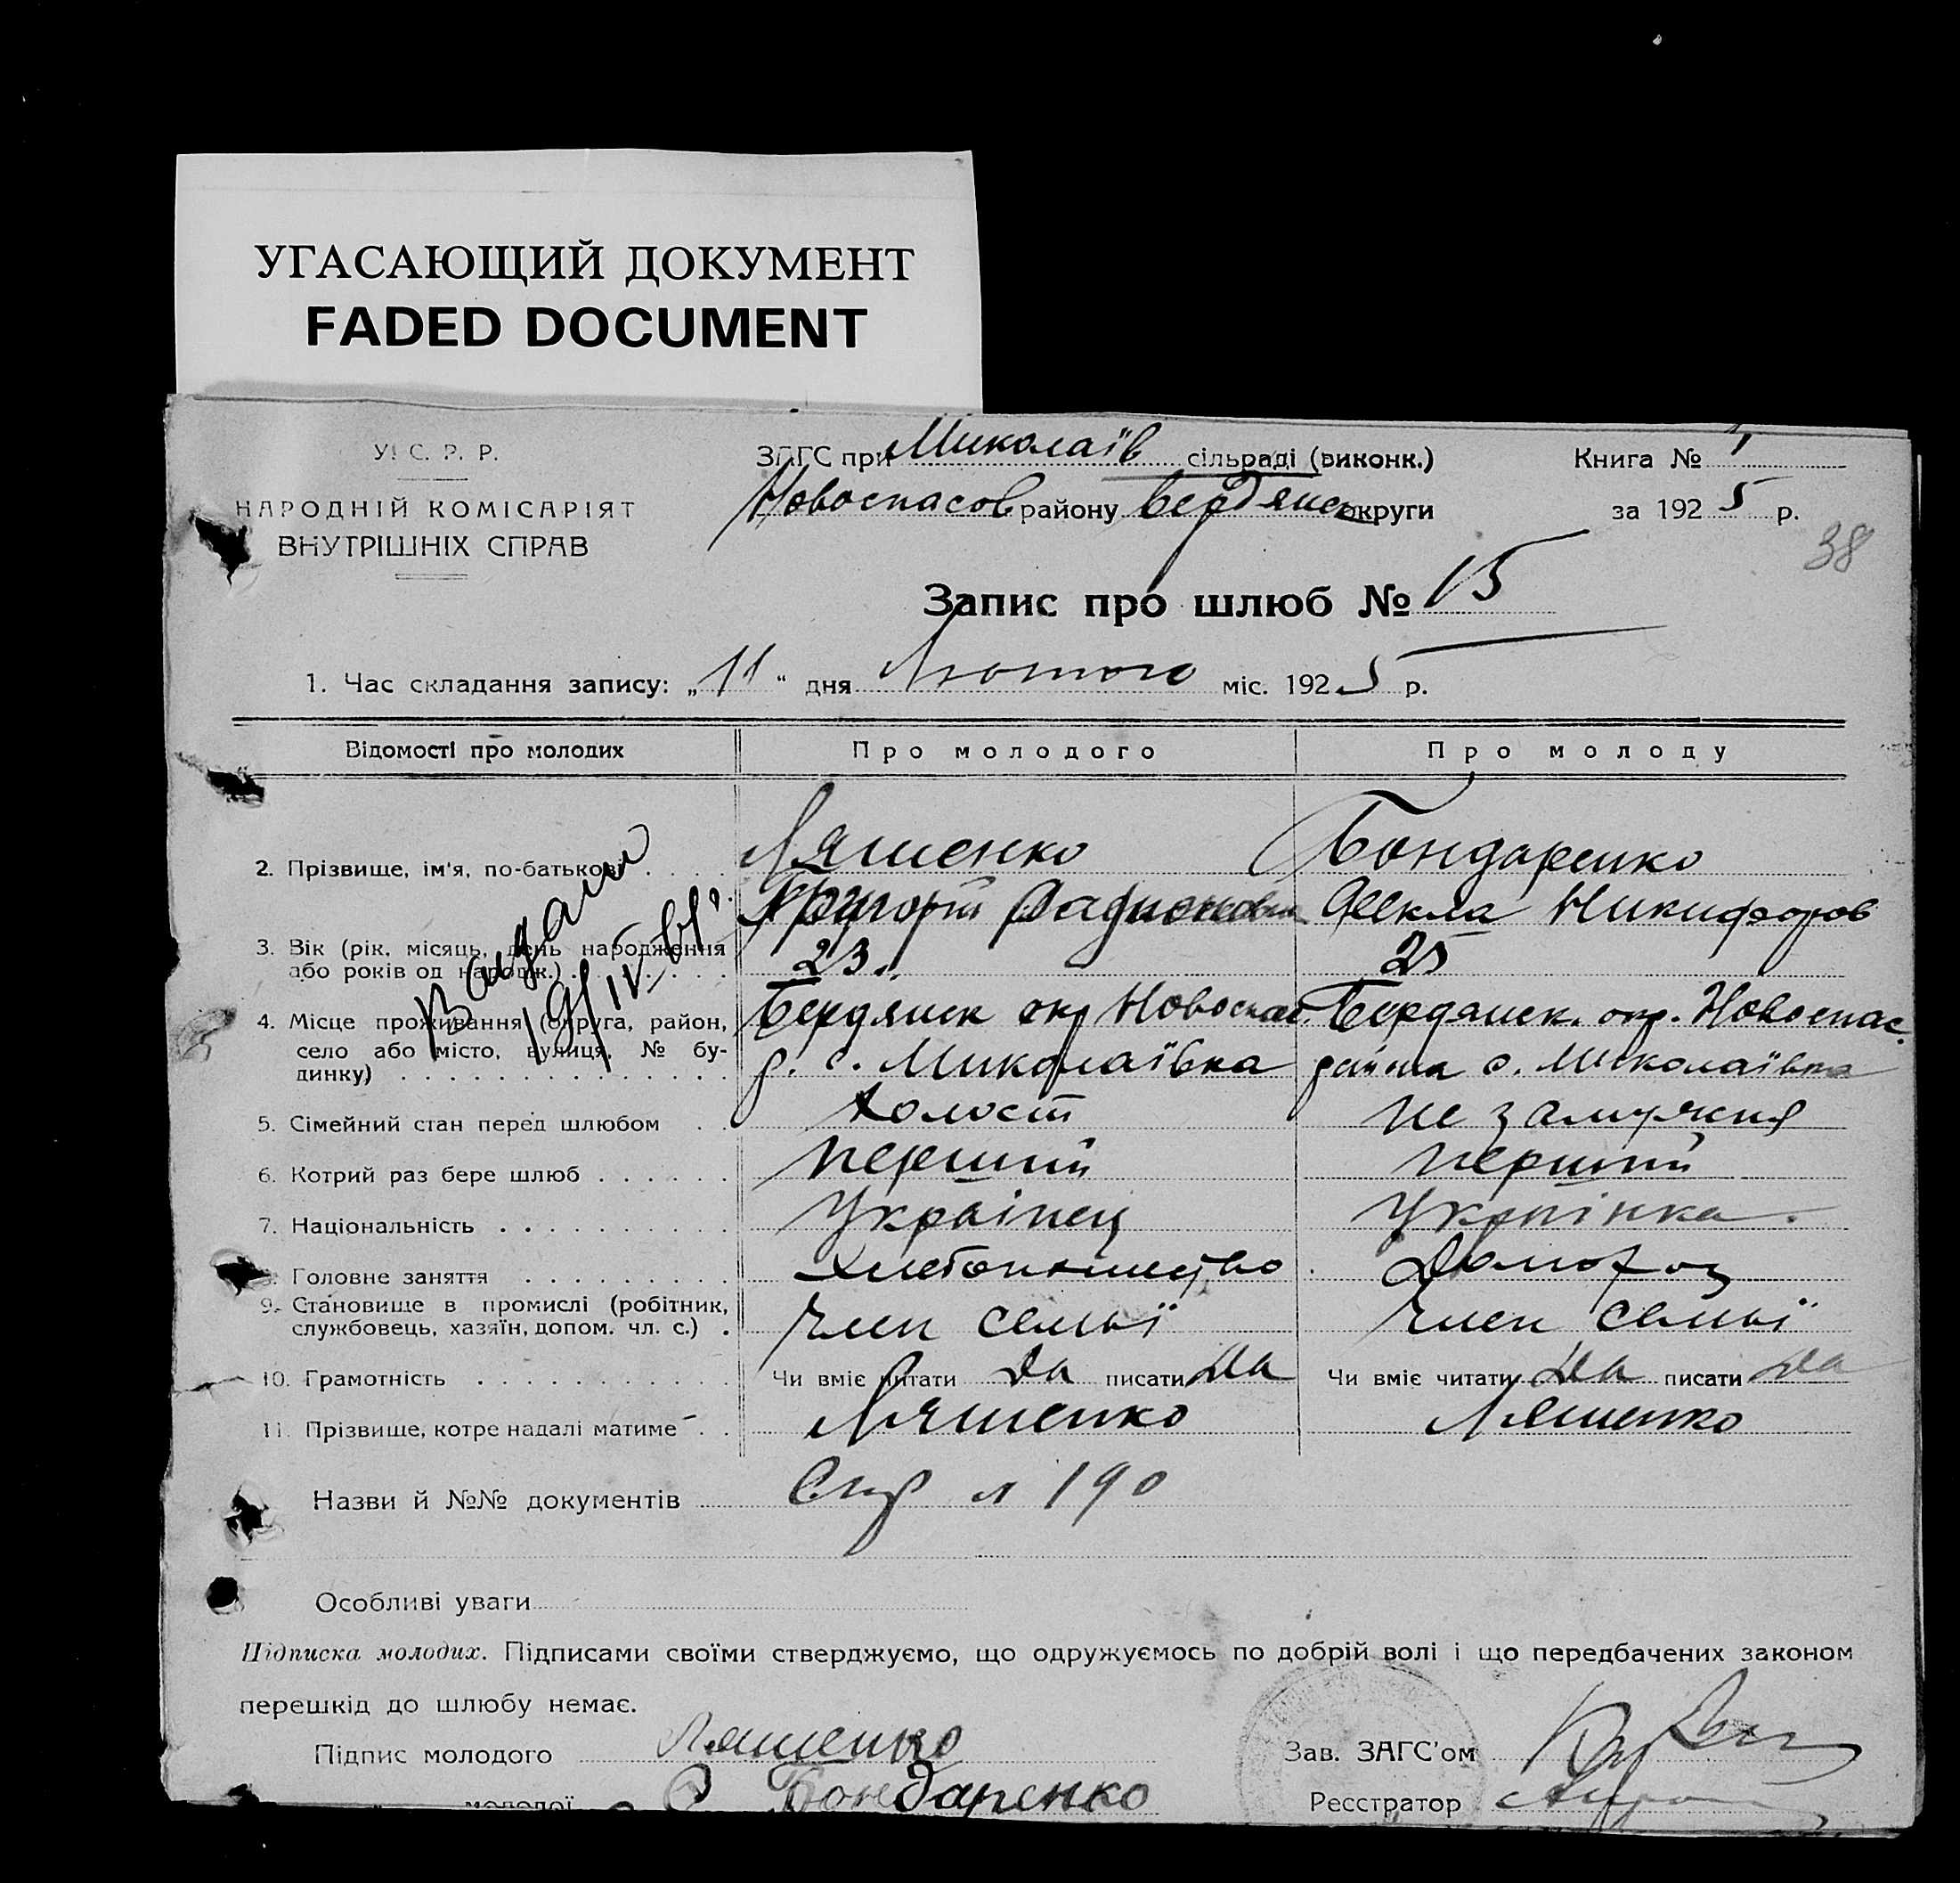 УГАСАЮЩИЙ ДОКУМЕНТ
FADED DOCUMENT
У. С. Р. Р.
НАРОДНІЙ КОМІСАРІЯТ
ВНУТРІШНІХ СПРАВ
ЗАГС при Миколаїв сільраді (виконк.)
Новоспасов району Бердянск округи
Книга №
за 1925 р.
38
Запис про шлюб № 15
1. Час складання запису: „11“ дня Лютого міс. 1925 р.
Відомості про молодих Про молодого Про молоду
2. Прізвище, ім'я, по-батькові Ляшенко Бондаренко
Григорій Радионович Фекла Никифоров
3. Вік (рік, місяць, день народження
або років од народж.) 23 25
4. Місце проживання (округа, район, Бердянск окр Новоспас. Бердянск. окр. Новоспас.
село або місто, вулиця, № бу-
динку) р. с. Миколаївка района с. Миколаївка
5. Сімейний стан перед шлюбом Холост не замужня
6. Котрий раз бере шлюб перший перший
7. Національність Українец Українка.
8. Головне заняття Хлебопашество
9. Становище в промислі (робітник,
службовець, хазяїн, допом. чл. с.) Член семьї Член семьї
10. Грамотність Чи вміє читати Да писати Да Чи вміє читати Да писати Да
11. Прізвище, котре надалі матиме Ляшенко Ляшенко
Назви й №№ документів 190
Особливі уваги
Підписка молодих. Підписами своїми стверджуємо, що одружуємось по добрій волі і що передбачених законом
перешкід до шлюбу немає.
Підпис молодого Ляшенко
Зав. ЗАГС'ом
молодої Бондаренко
Реєстратор